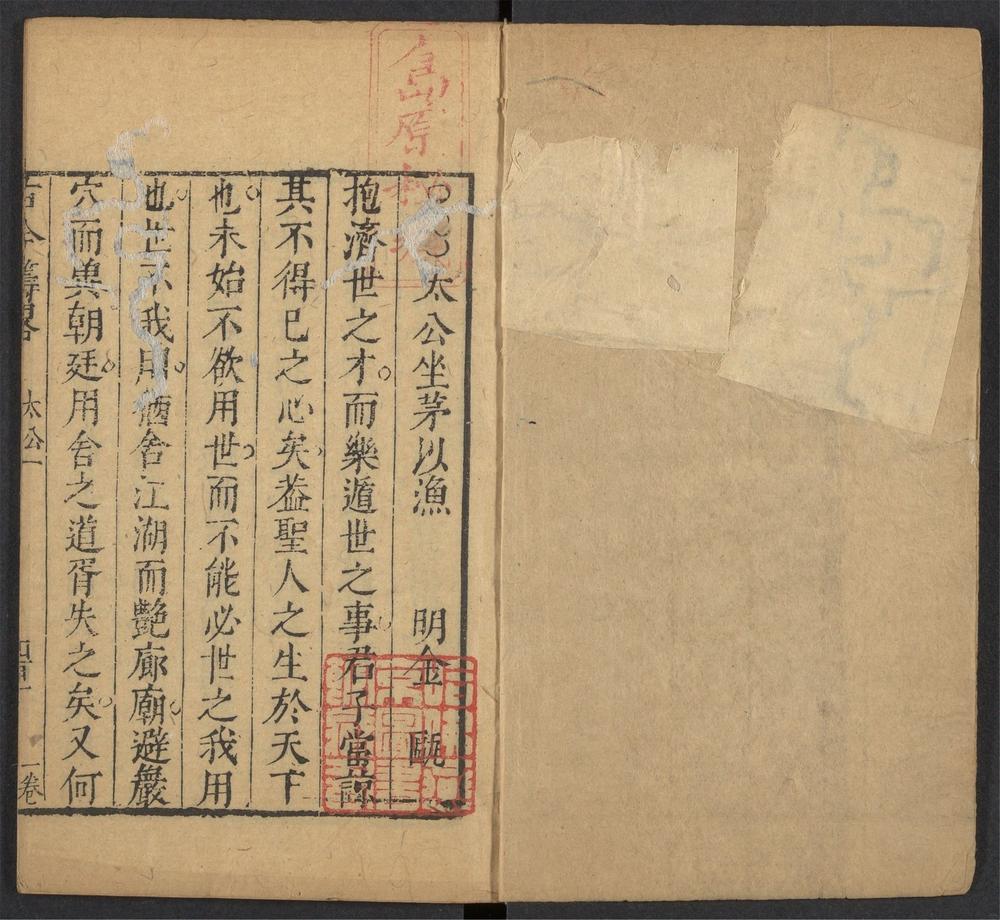 〇〇〇太公坐茅以漁　明金　甌
抱濟世之才而樂遁世之事君子當諒
其不得已之心矣葢聖人之生於天下
也未始不欲用世而不能必世之我用
也世不我用廼舍江湖而艷廊廟避巖
穴而興朝廷用舍之道胥失之矣又何
古今籌畧　太公一　一卷